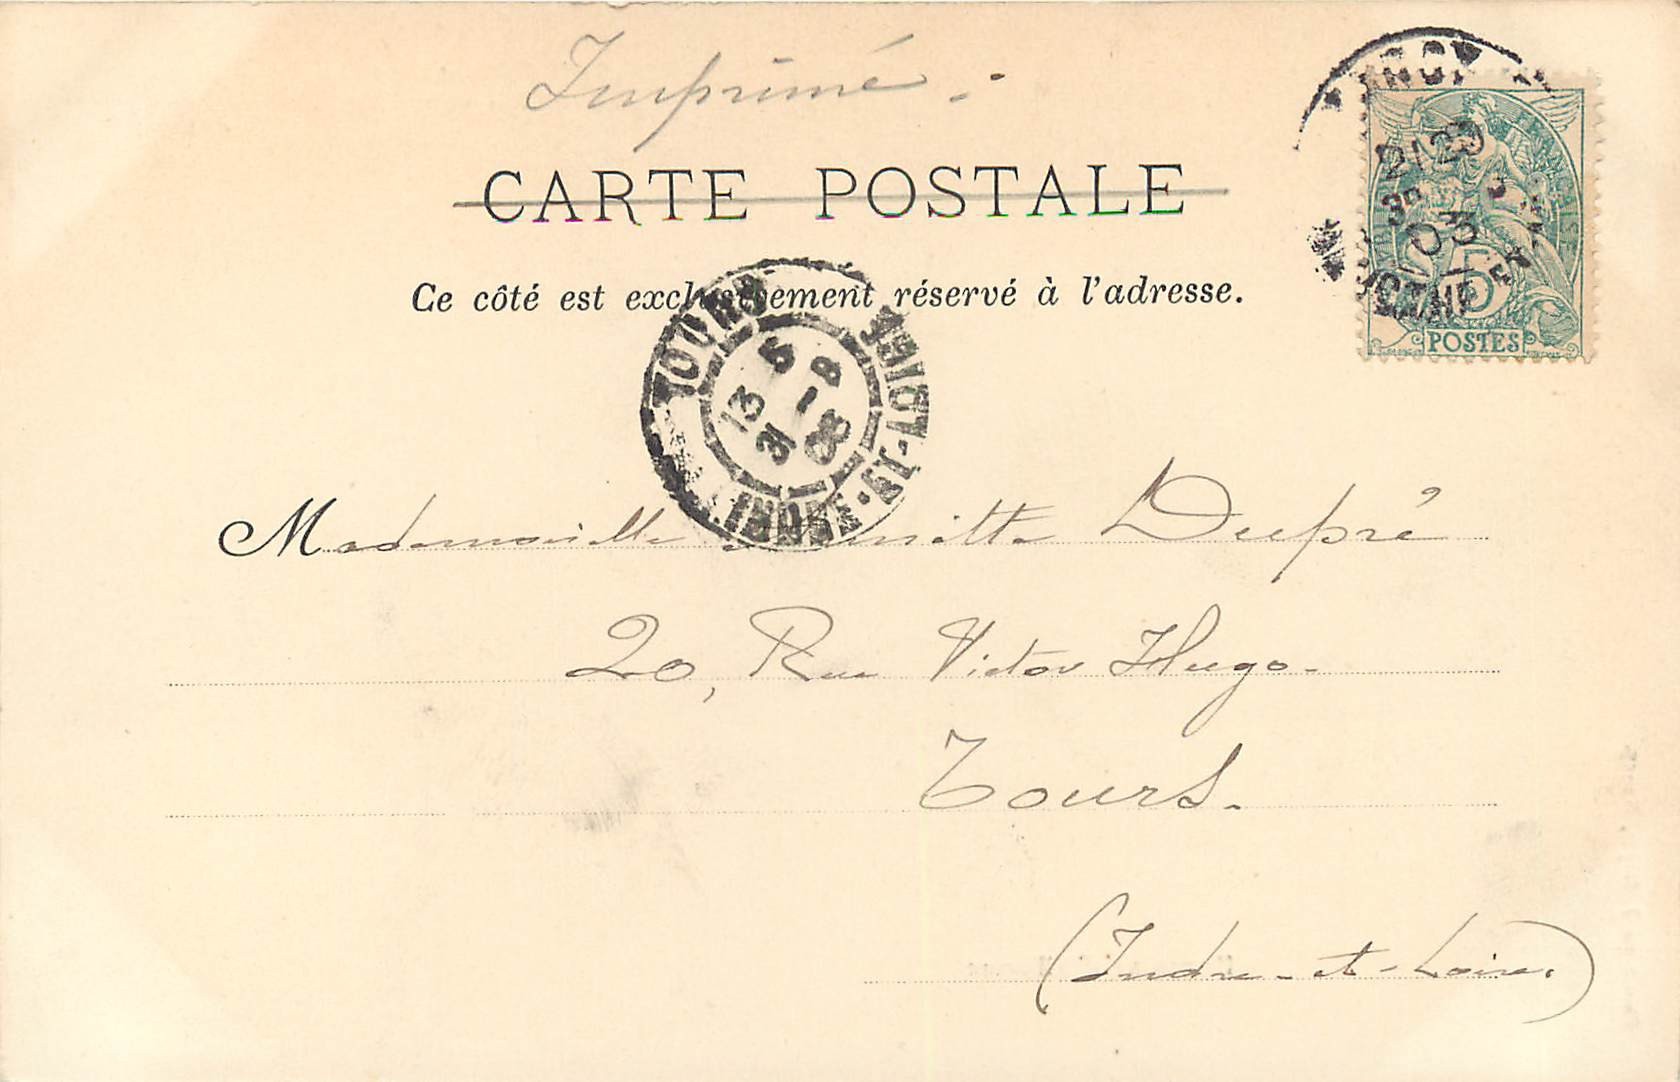 Imprimé.
CARTE POSTALE
Ce côté est exclusivement réservé à l'adresse.
TOURS
INDRE-ET-LOIRE
POSTES
5
Mademoiselle Dupré
20, Rue Victor Hugo.
Tours.
(Indre-et-Loire.)